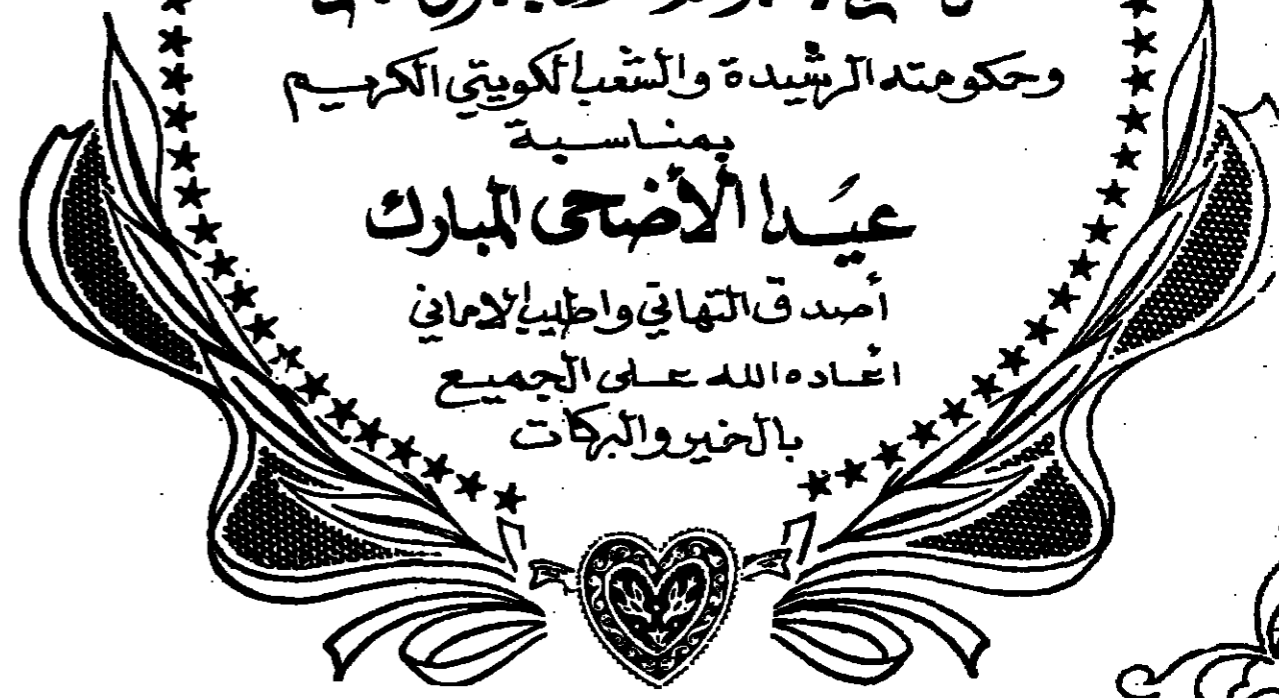 وحكومته الرشيدة والشعب الكويتي الكريم
بمناسبة
عيد الأضحى المبارك
أصدق التهاني واطيب الاماني
اعاده الله على الجميع
بالخير والبركات